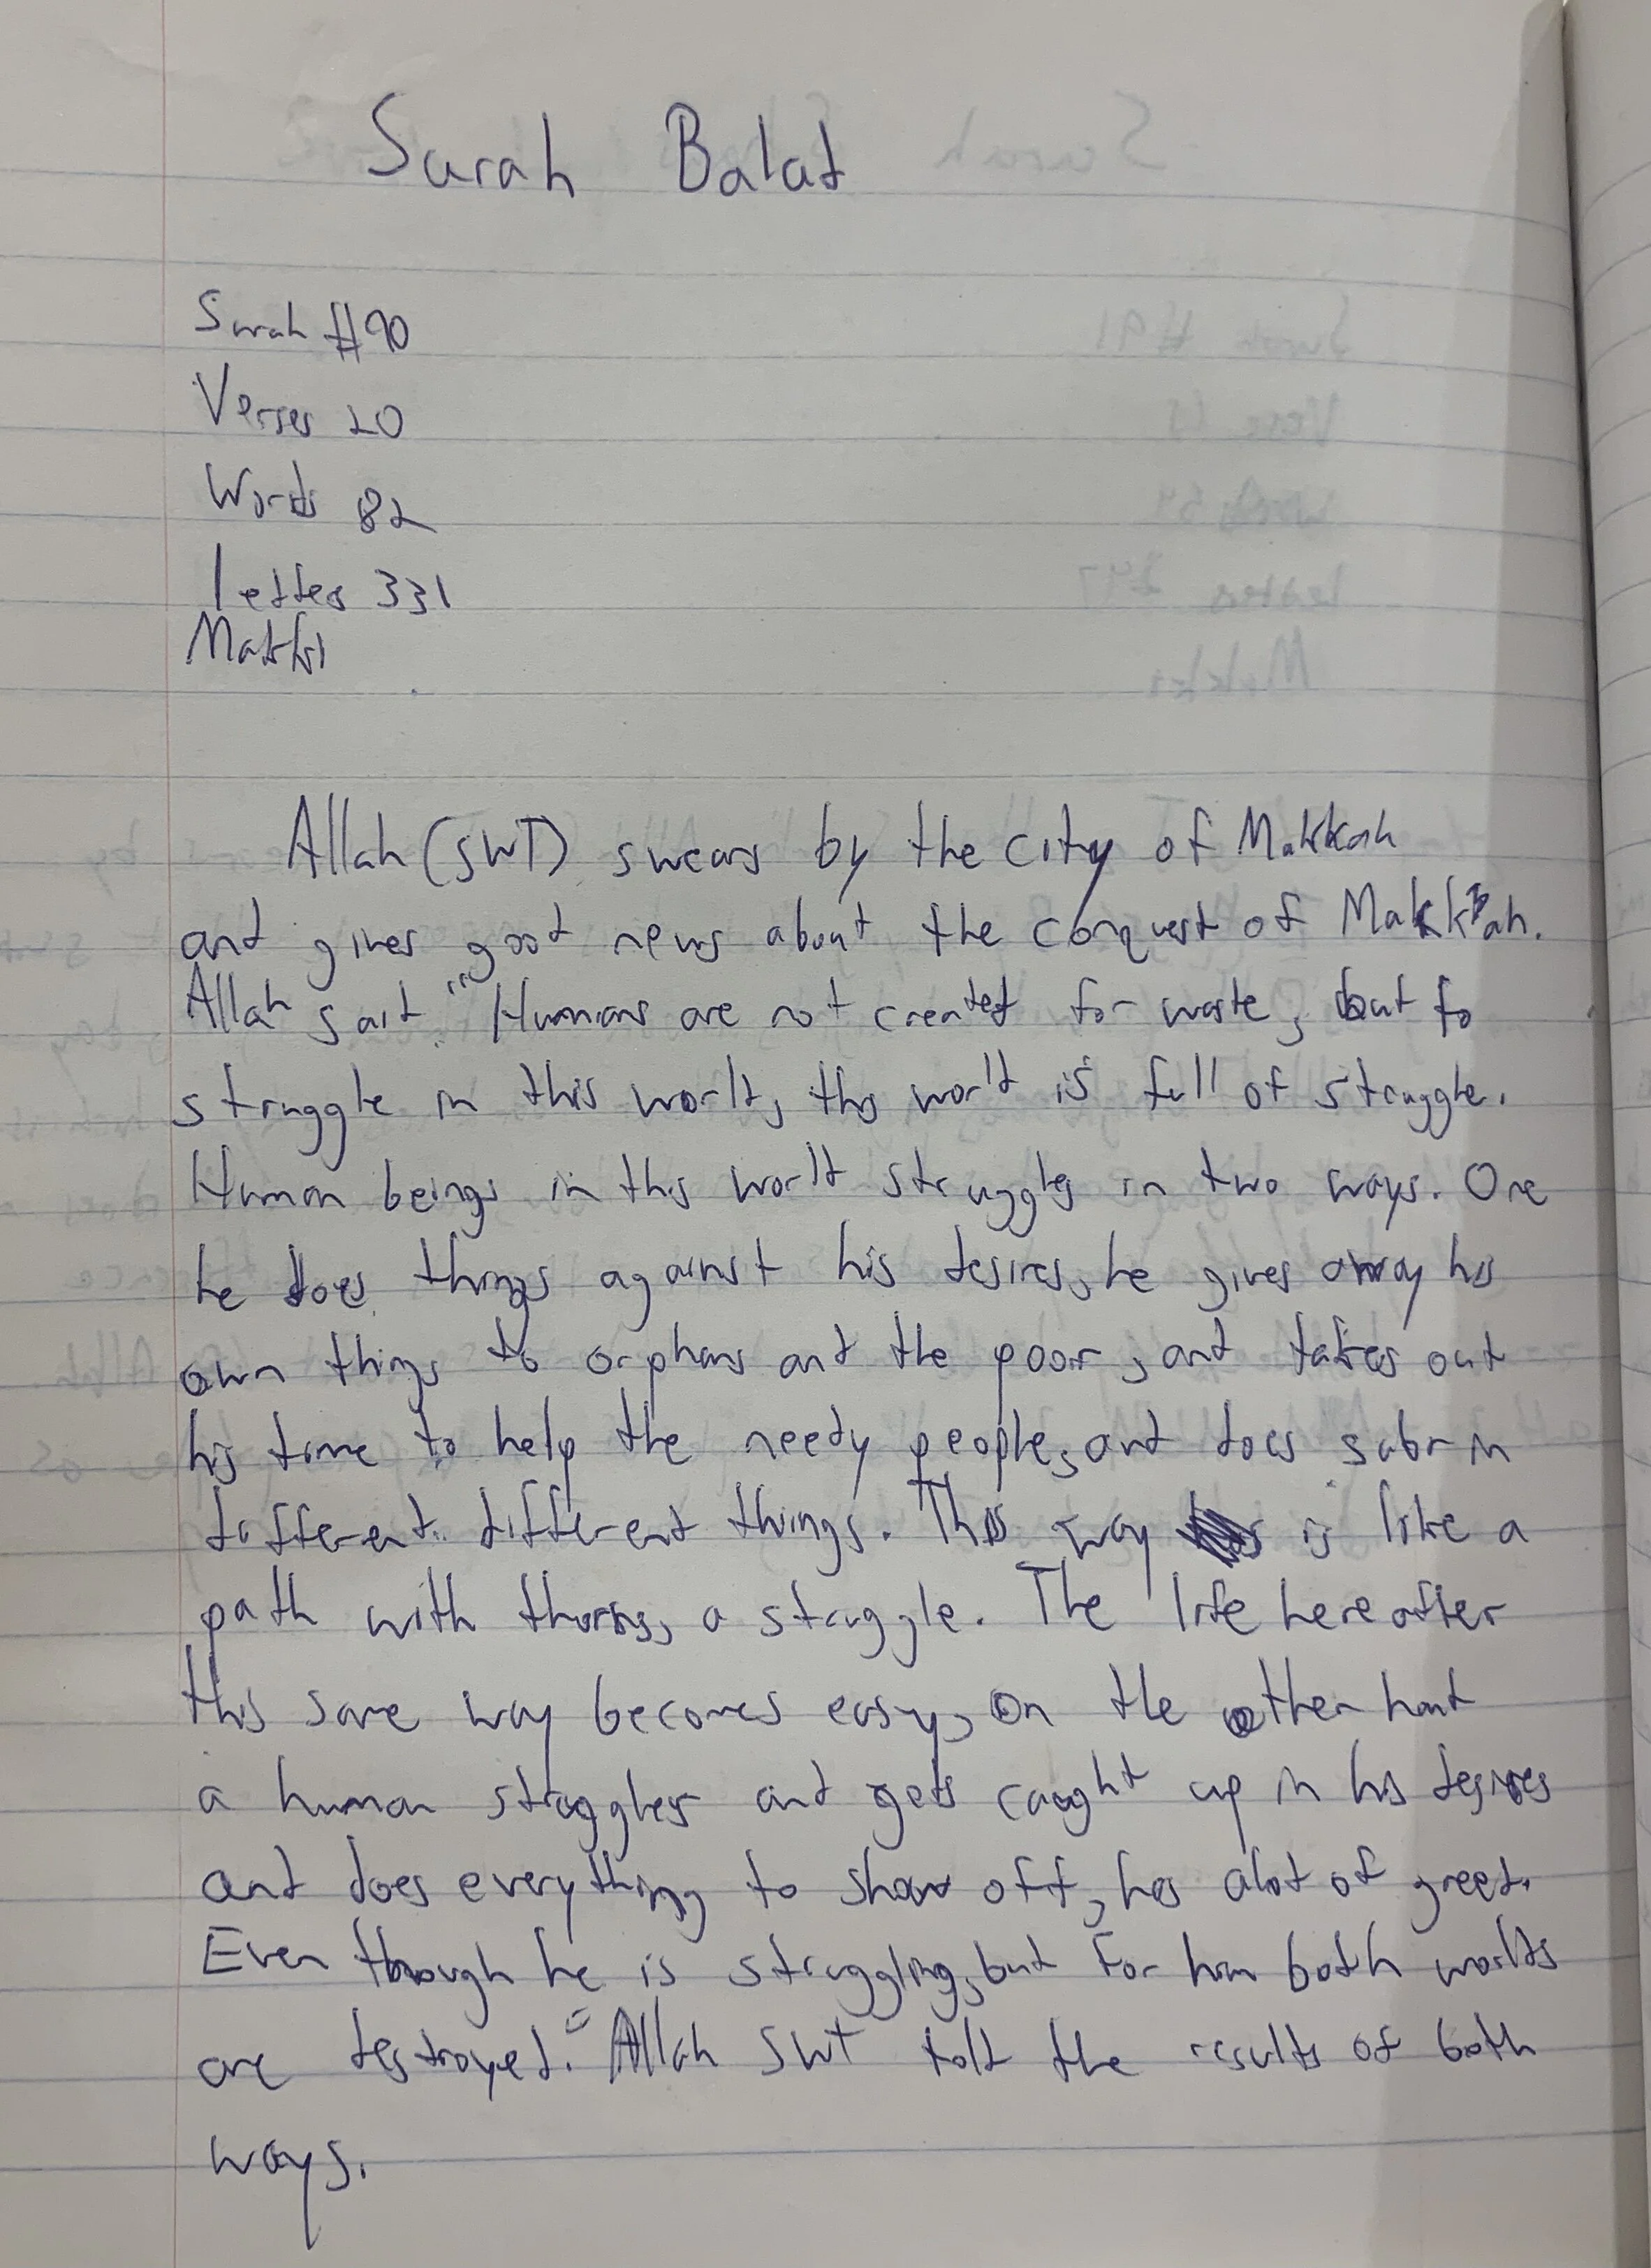 Surah Balad
Surah #90
Verses 20
Words 82
Letters 331
Makki
Allah (SWT) swears by the city of Makkah
and gives good news about the conquest of Makkah.
Allah said " Humans are not created for waste, but to
struggle in this world, this world is full of struggle.
Human beings in this world struggles in two ways. One
he does things against his desires, he gives away his
own things to orphans and the poor, and takes out
his time to help the needy people, and does sabr in
different different things. This way is like a
path with thorns, a struggle. The life hereafter
this same way becomes easy, on the other hand
a human struggles and gets caught up in his desires
and does everything to show off, has alot of greed.
Even though he is struggling, but for him both worlds
are destroyed." Allah SWT told the results of both
ways.